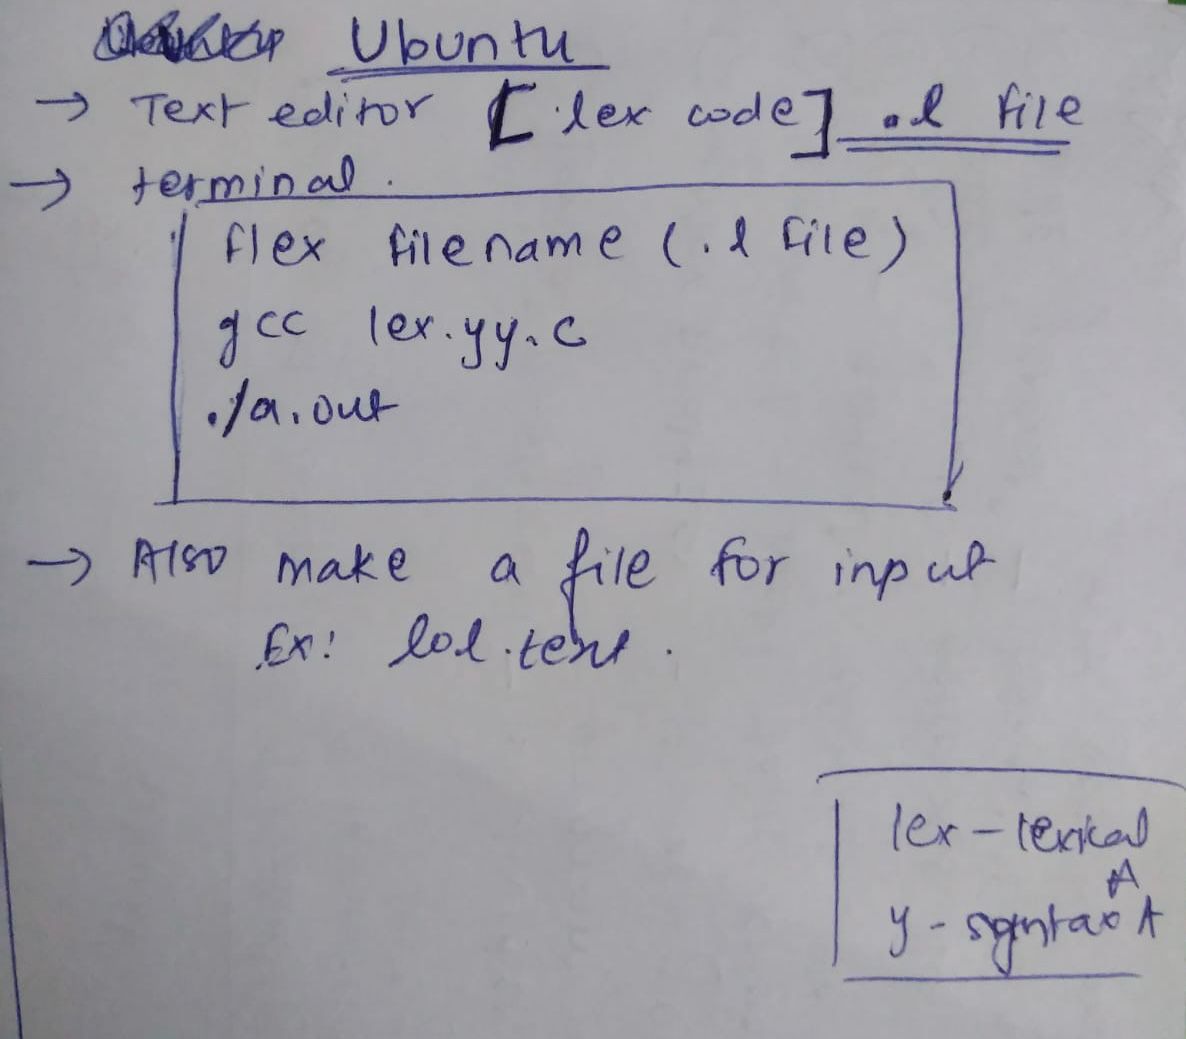 Ubuntu
→ Text editor [lex code] .l file
→ terminal.
flex filename (.l file)
gcc lex.yy.c
./a.out
→ Also make a file for input
Ex: lol.text.
lex - lexical
A
y - syntax A